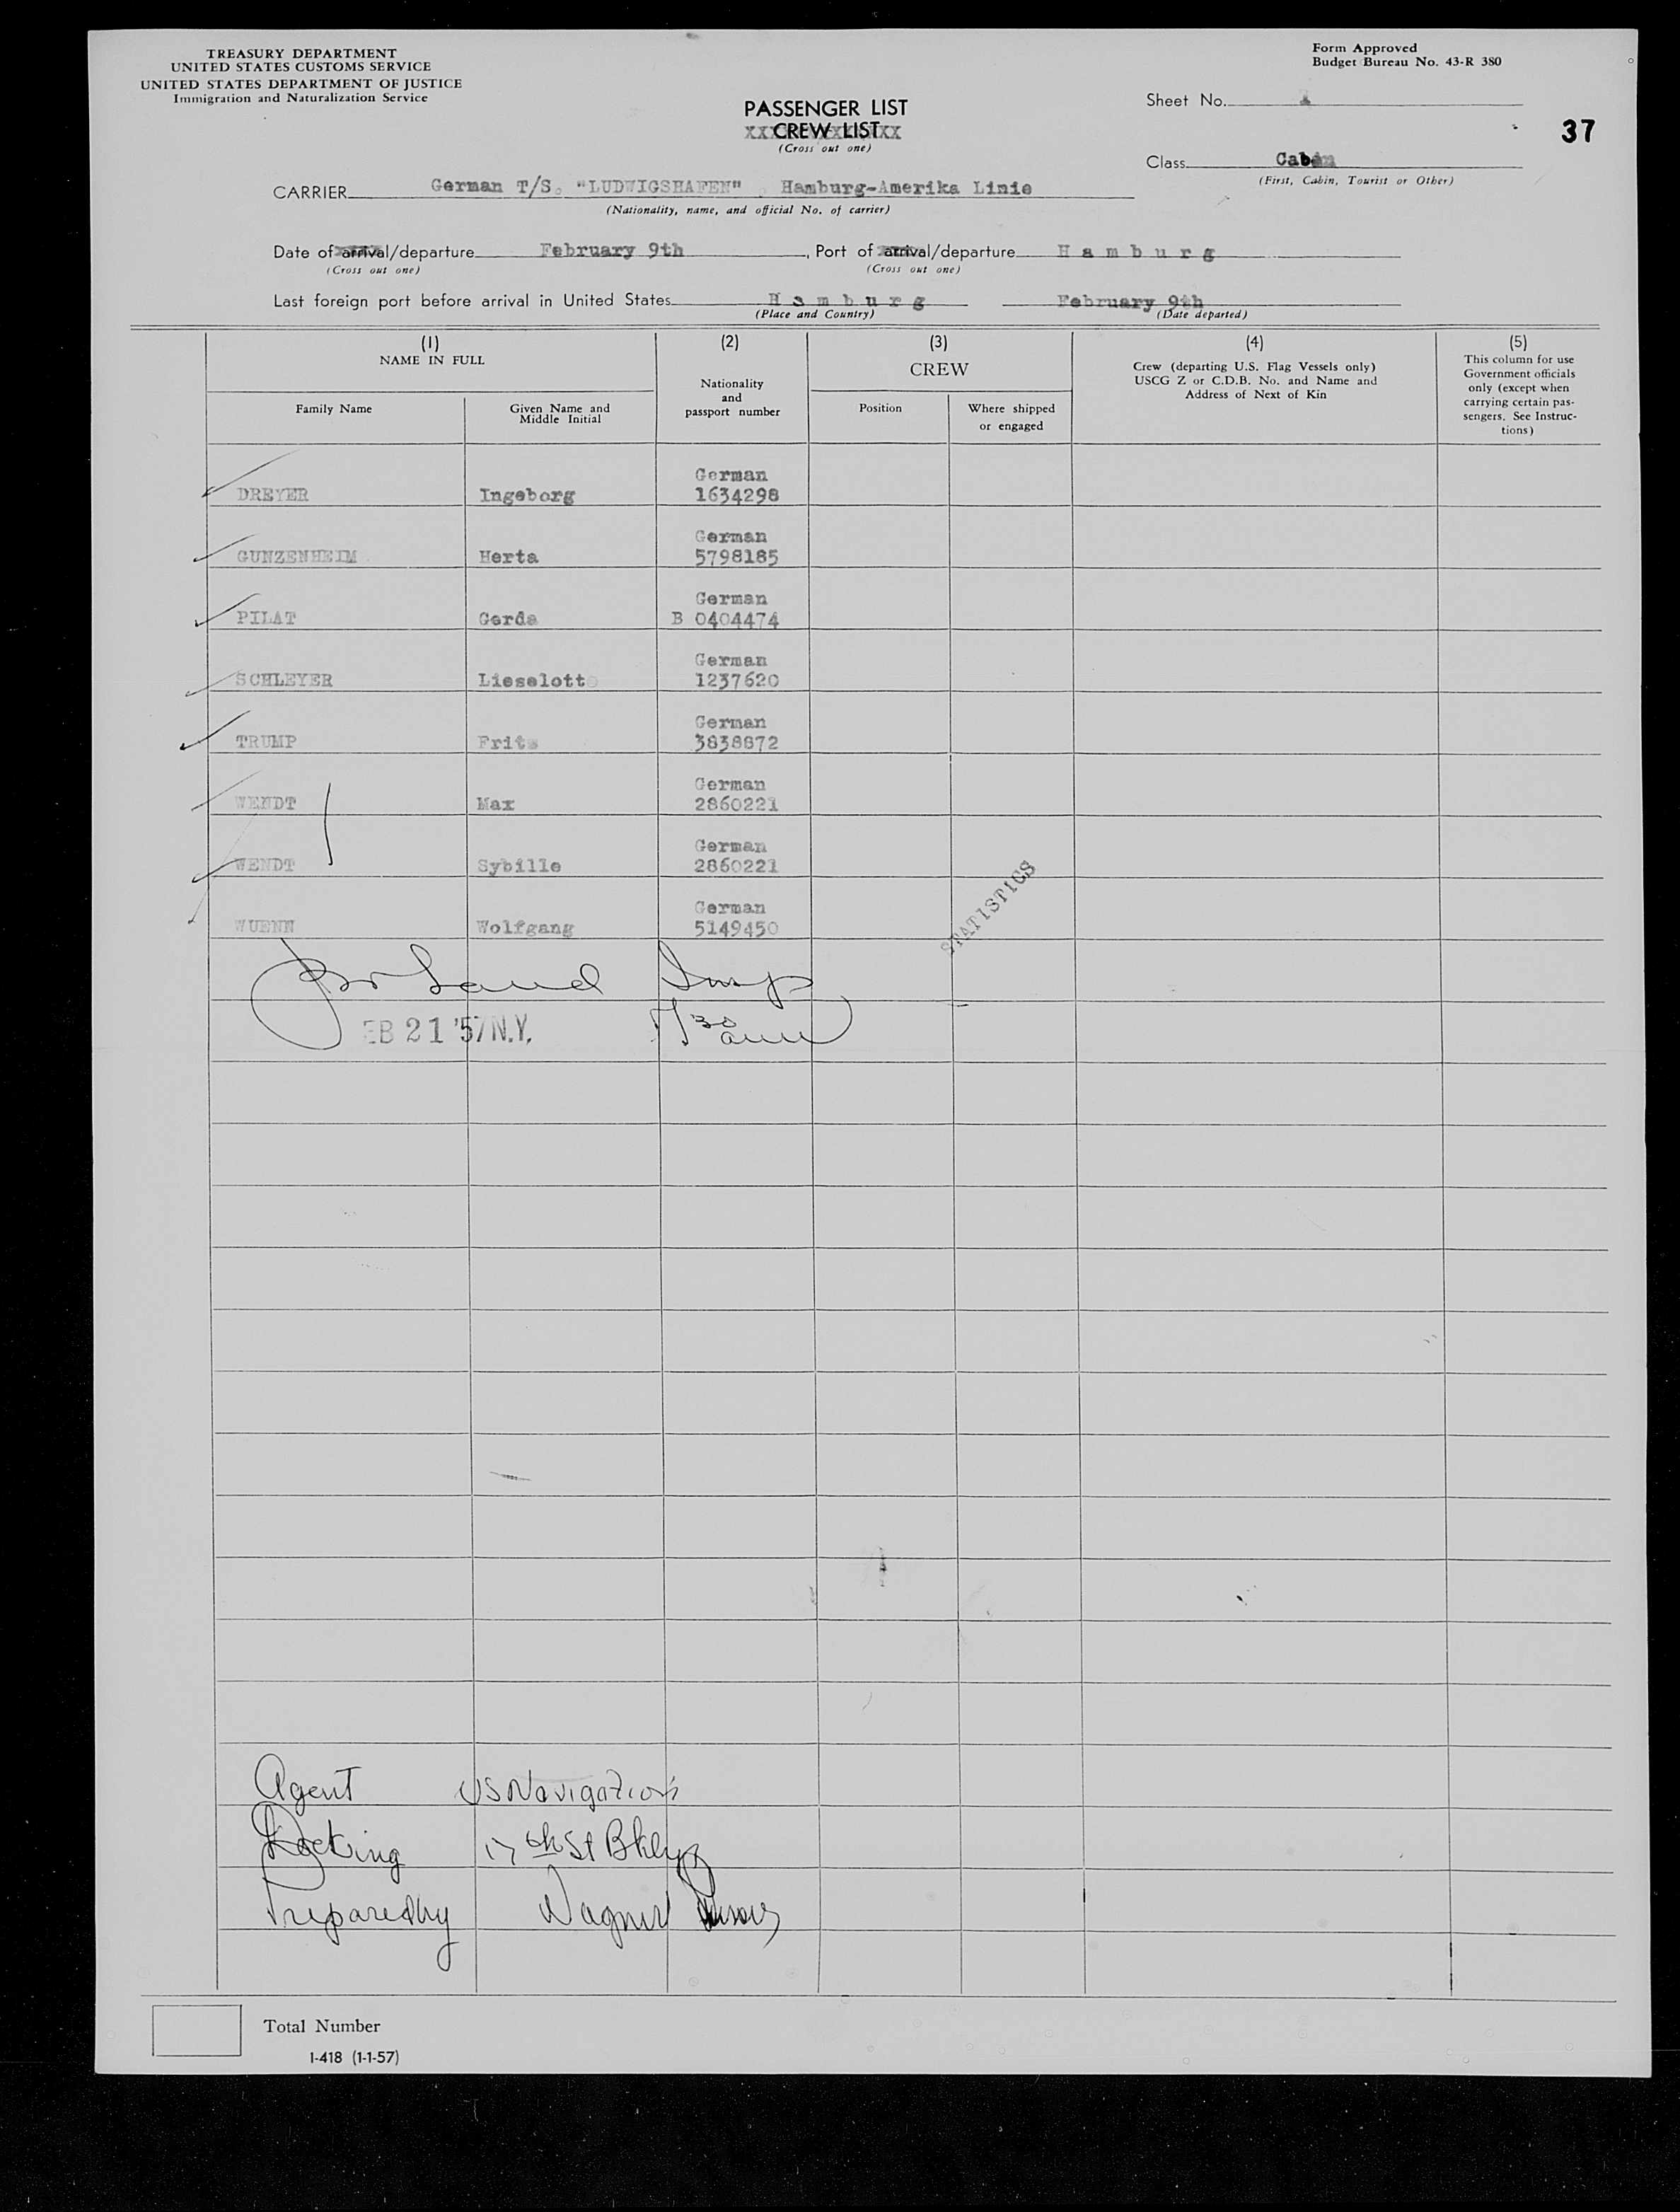 TREASURY DEPARTMENT
UNITED STATES CUSTOMS SERVICE
UNITED STATES DEPARTMENT OF JUSTICE
Immigration and Naturalization Service
Form Approved
Budget Bureau No. 43-R 380
Sheet No.
37
PASSENGER LIST
CREW LIST
(Cross out one)
Class Cabin
(First, Cabin, Tourist or Other)
CARRIER German T/S. "LUDWIGSHAFEN" Hamburg-Amerika Linie
(Nationality, name, and official No. of carrier)
Date of arrival/departure February 9th, Port of arrival/departure Hamburg
(Cross out one) (Cross out one)
Last foreign port before arrival in United States Hamburg February 9th
(Place and Country) (Date departed)
(1) (2) (3) (4) (5)
NAME IN FULL
Family Name
Given Name and
Middle Initial
Nationality
and
passport number
CREW
Position
Where shipped
or engaged
Crew (departing U.S. Flag Vessels only)
USCG Z or C.D.B. No. and Name and
Address of Next of Kin
This column for use
Government officials
only (except when
carrying certain pas-
sengers. See Instruc-
tions)
German
DREYER Ingeborg 1634298
German
GUNZENHEIM Herta 5798185
German
PILAT Gerda B 0404474
German
SCHLEYER Lieselotte 1237620
German
TRUMP Fritz 3838872
German
WENDT Max 2860221
German
WENDT Sybille 2860221
German
WUENN Wolfgang 5149450
STATISTICS
EB 21 '57 N.Y.
Agent US Navigation
Docking 17th St Bklyn
Prepared by Wagner
Total Number
I-418 (1-1-57)